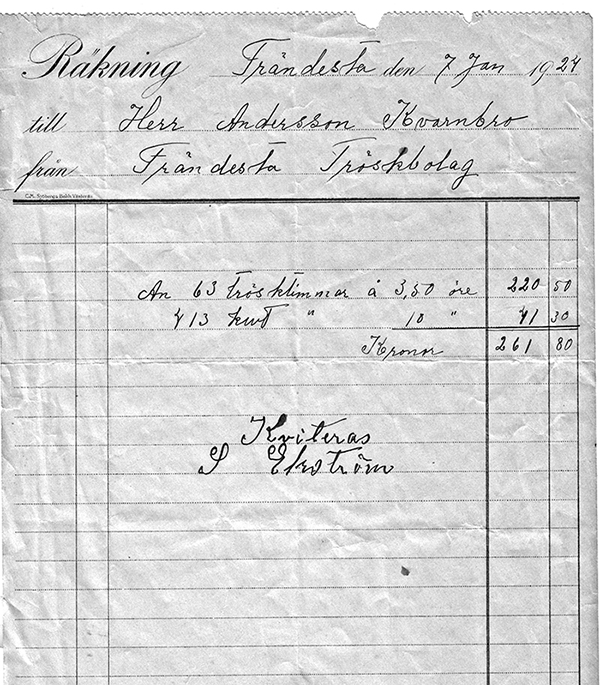 Räkning Frändesta den 7 Jan 1924
till Herr Andersson Kvarnbro
från Frändesta Tröskbolag
An 63 Trösktimmar á 3,50 öre 220 50
413 kwt " 10 " 41 30
Kronor 261 80
Kviteras
S Ekström